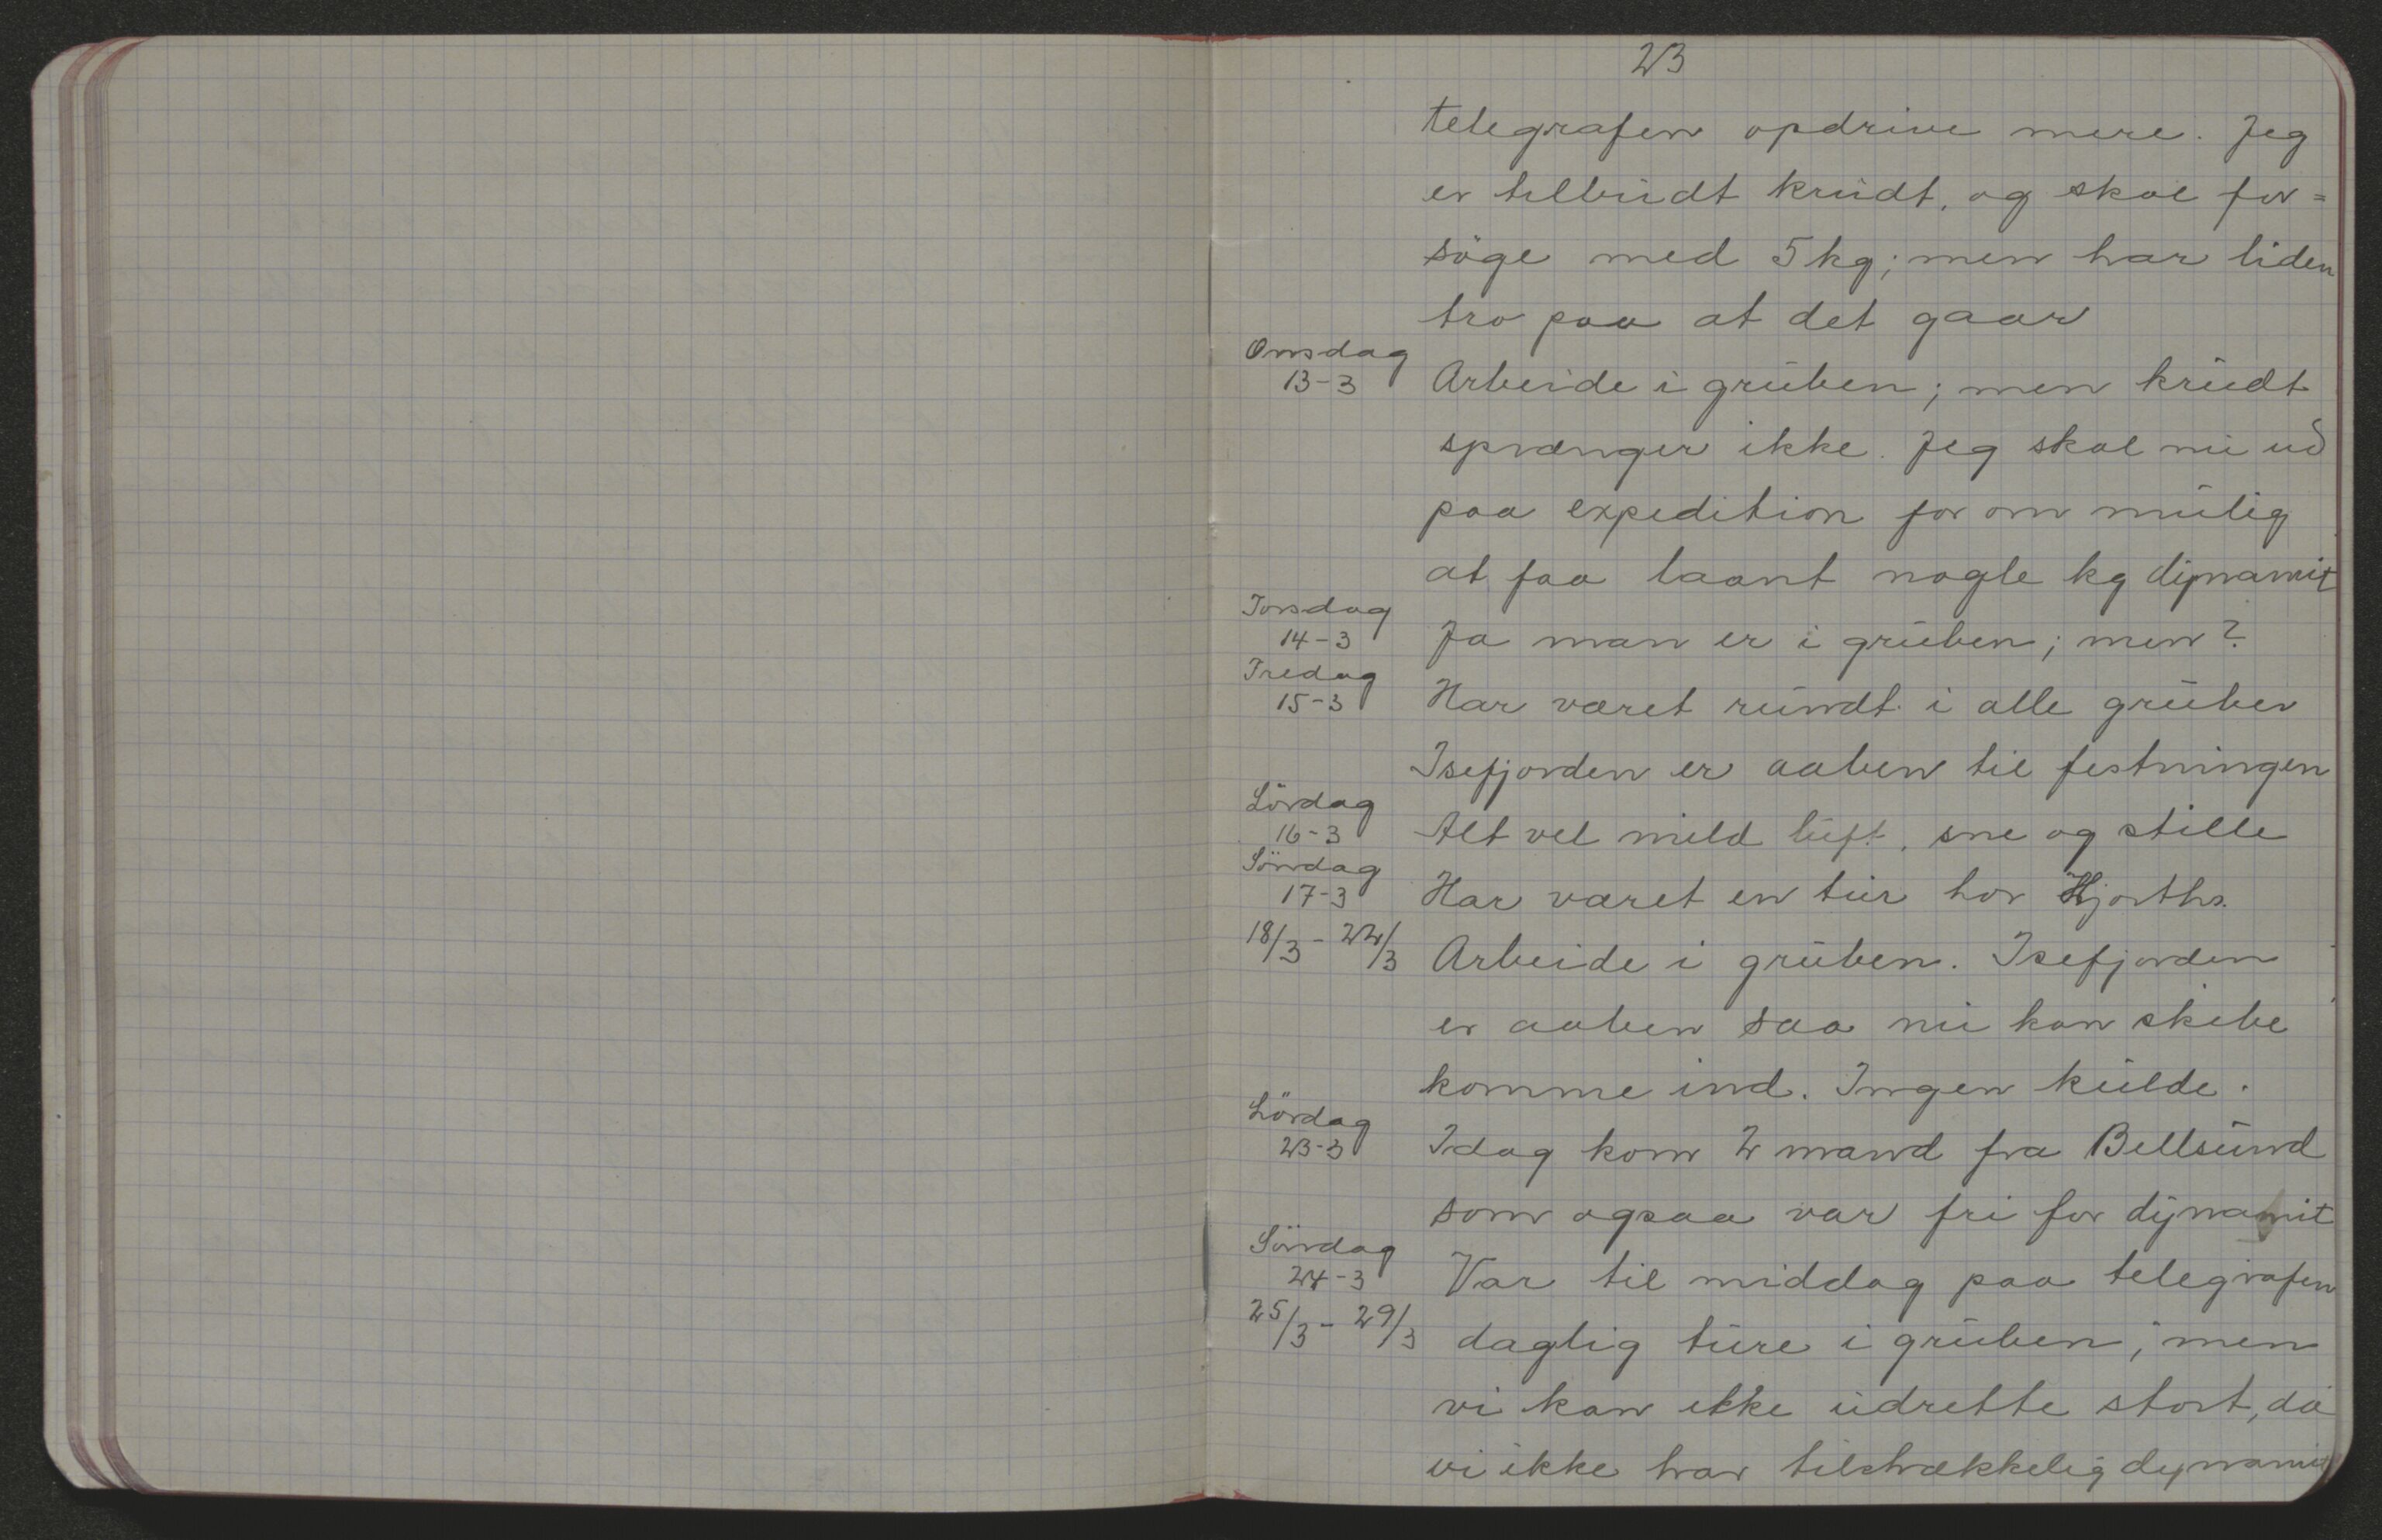 23
telegrafen opdrive mere. Jeg
er tilbudt krudt, og skal for=
søge med 5 kg; men har liden
tro paa at det gaar
Onsdag
13-3 Arbeide i gruben; men krudt
sprænger ikke. Jeg skal nu ud
paa expedition for om mulig
at faa laant nogle kg dynamit
Torsdag
14-3 Ja man er i gruben; men?
Fredag
15-3 Har været rundt i alle gruber
Isefjorden er aaben til festningen
Lördag
16-3 Alt vel mild luft, sne og stille
Söndag
17-3 Har været en tur hos Hjorths.
18/3 - 22/3 Arbeide i gruben. Isefjorden
er aaben saa nu kan skibe
komme ind. Ingen kulde.
Lördag
23-3 Idag kom 2 mand fra Bellsund
som ogsaa var fri for dynamit
Söndag
24-3 Var til middag paa telegrafen
25/3 - 29/3 daglig ture i gruben; men
vi kan ikke udrette stort, da
vi ikke har tilstrækkelig dynamit